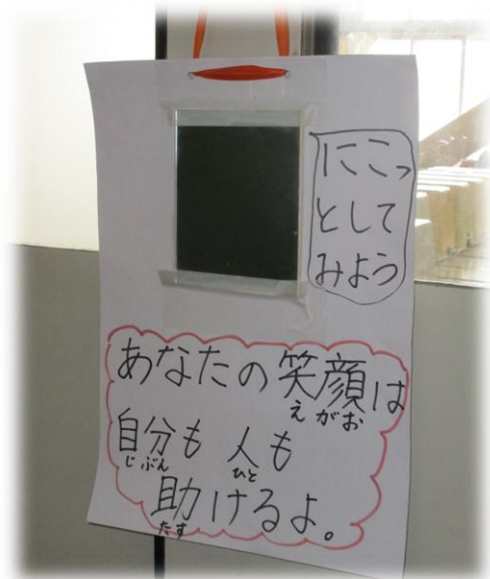 にこっ
として
みよう
あなたの笑顔は
えがお
自分も 人も
じぶん ひと
助けるよ。
たす